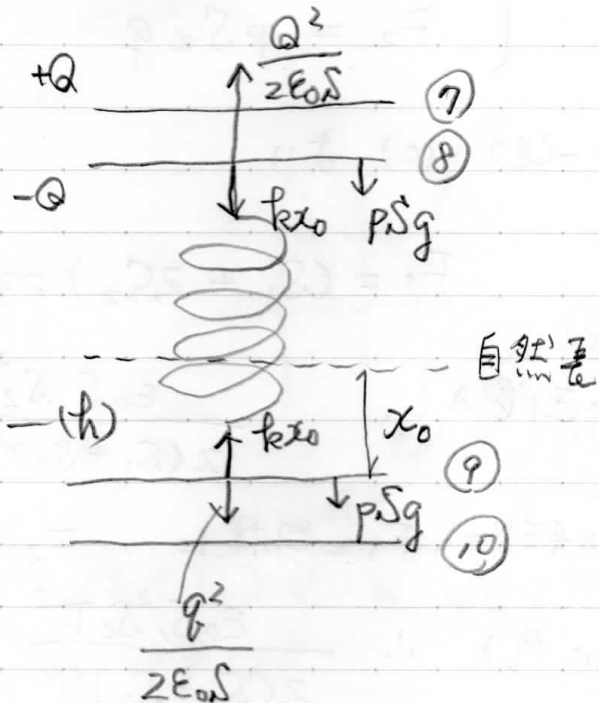 +Q
Q²/2ε₀S
⑦
⑧
-Q
kx₀
ρSg
自然長
(h)
kx₀
x₀
⑨
ρSg
⑩
q²/2ε₀S